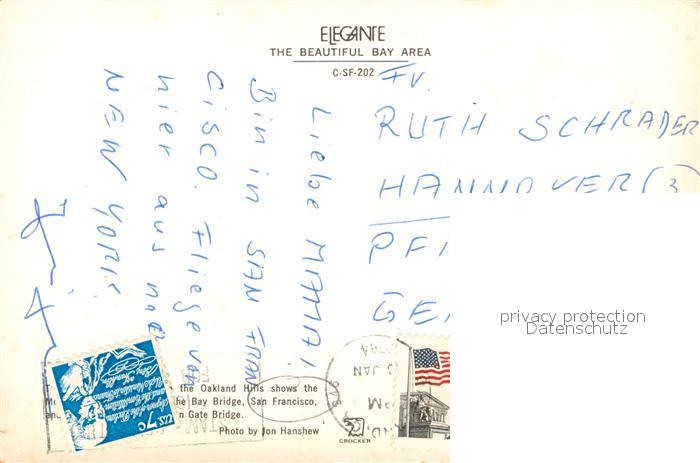 ELEGANTE
THE BEAUTIFUL BAY AREA
C-SF-202
Liebe MAMA!
Bin in SAN FRAN
CISCO. Fliege von
hier aus nac
NEW YORK.
Fr.
RUTH SCHRADER
HANNOVER (3)
PFI
GE
privacy protection
Datenschutz
the Oakland Hills shows the
the Bay Bridge, San Francisco,
n Gate Bridge.
Photo by Jon Hanshew
CROCKER
US 7c
JAN
PM